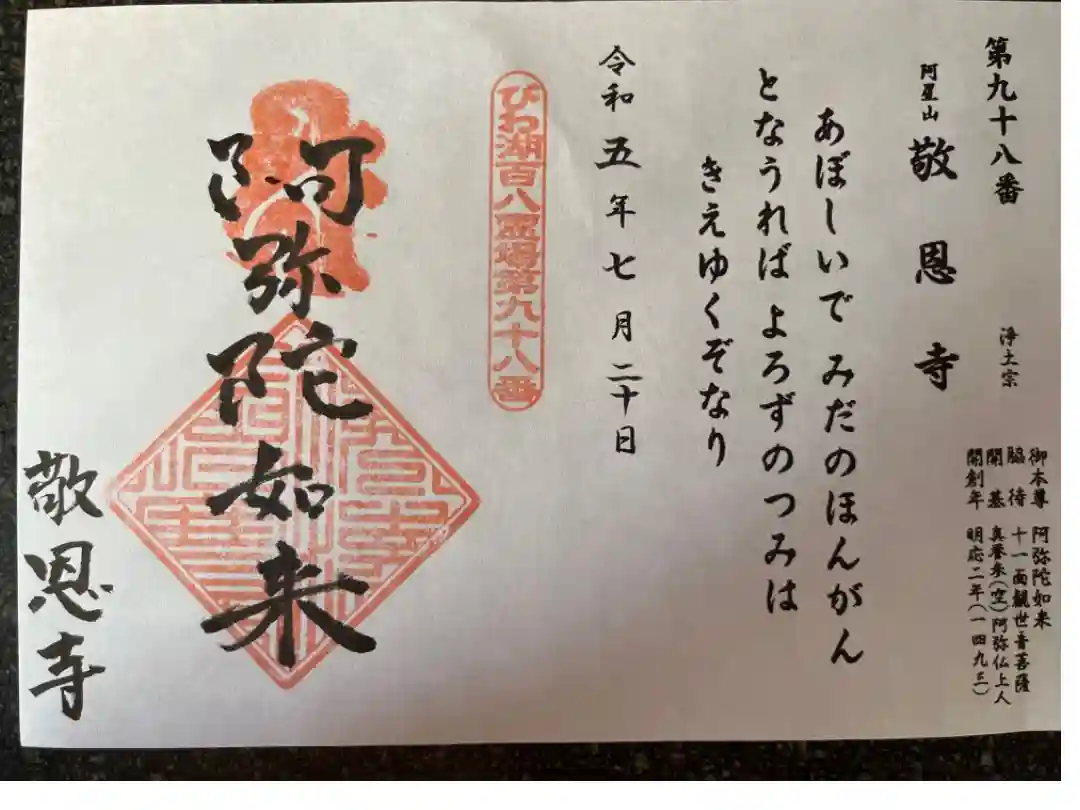 第九十八番
阿星山 敬恩寺
浄土宗
御本尊 阿弥陀如来
脇待 十一面観世音菩薩
開基 真養来(空)阿弥仏上人
開創年 明応二年(一四九三)
あぼしいで みだのほんがん
となうれば よろずのつみは
きえゆくぞなり
令和五年七月二十日
びわ湖百八霊場第九十八番
阿弥陀如来
敬恩寺